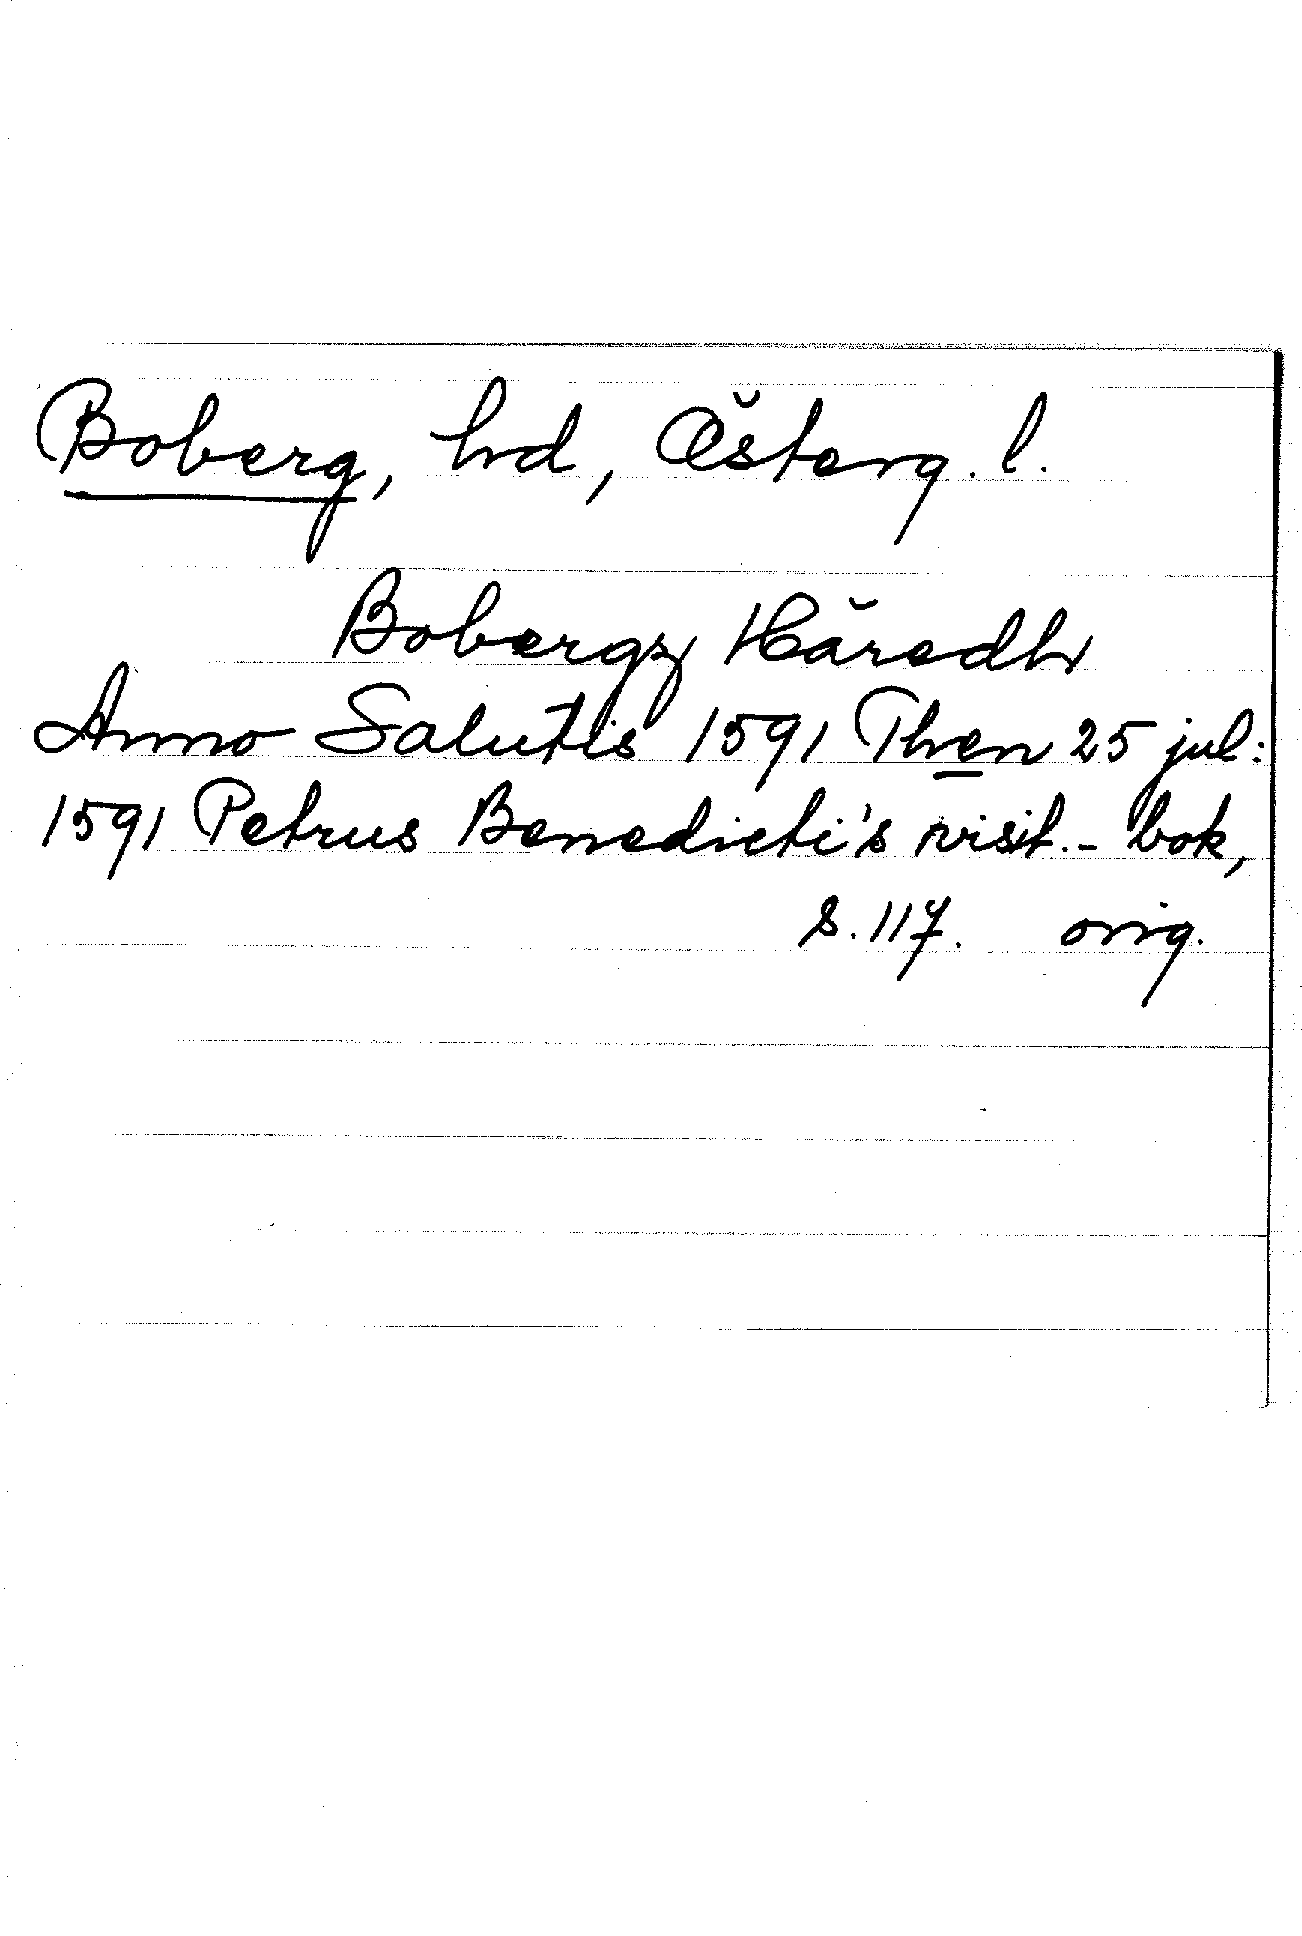 Boberg, hd, Österg. l.
Bobergz Häredh
Anno Salutis 1591 Then 25 jul:
1591 Petrus Benedicti's visit.-bok,
s. 117. orig.